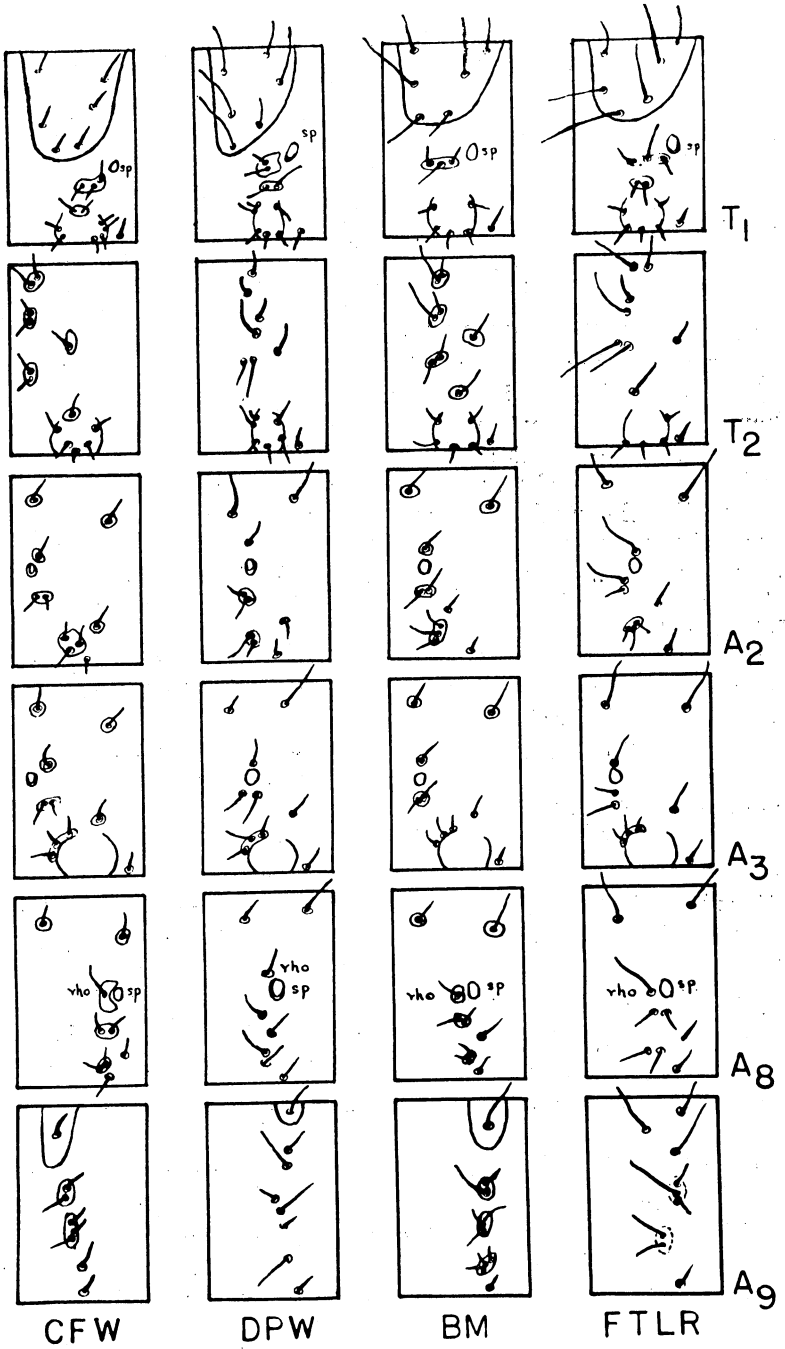 sp
sp
sp
sp
T1
T2
A2
A3
rho
rho sp
sp
rho sp
rho sp
A8
A9
CFW DPW BM FTLR